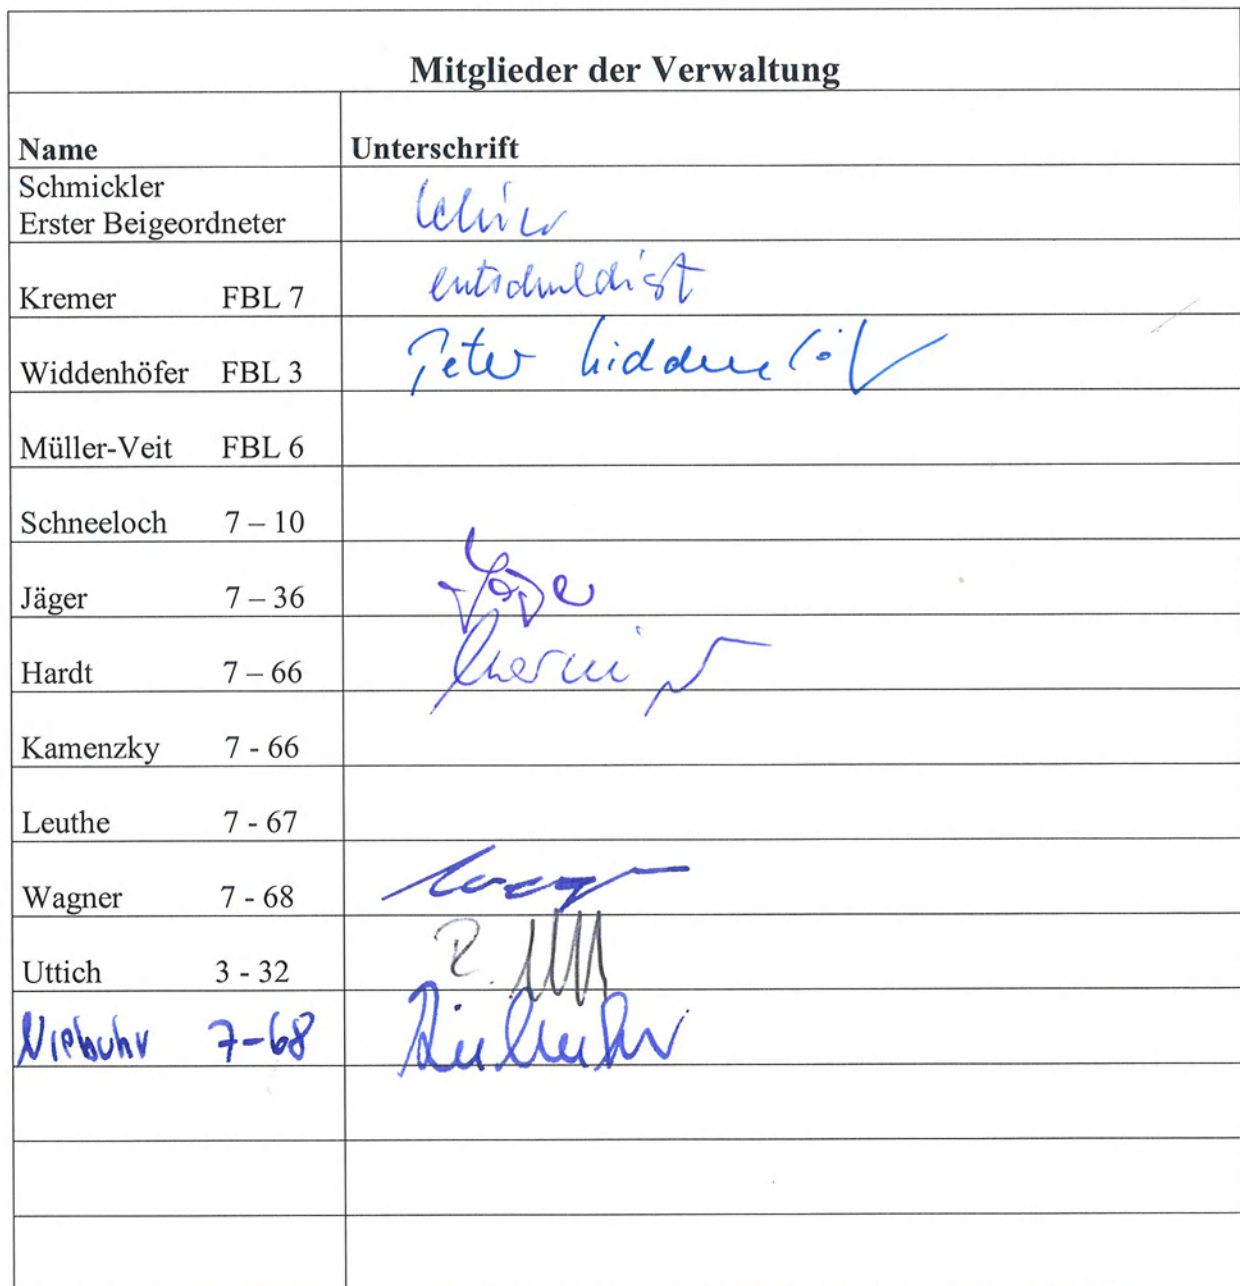 Mitglieder der Verwaltung
Name Unterschrift
Schmickler
Erster Beigeordneter
Kremer FBL 7 entschuldigt
Widdenhöfer FBL 3 Peter Widdenhöf
Müller-Veit FBL 6
Schneeloch 7 – 10
Jäger 7 – 36 Jäger
Hardt 7 – 66
Kamenzky 7 - 66
Leuthe 7 - 67
Wagner 7 - 68
Uttich 3 - 32
Niebuhr 7-68 Niebuhr